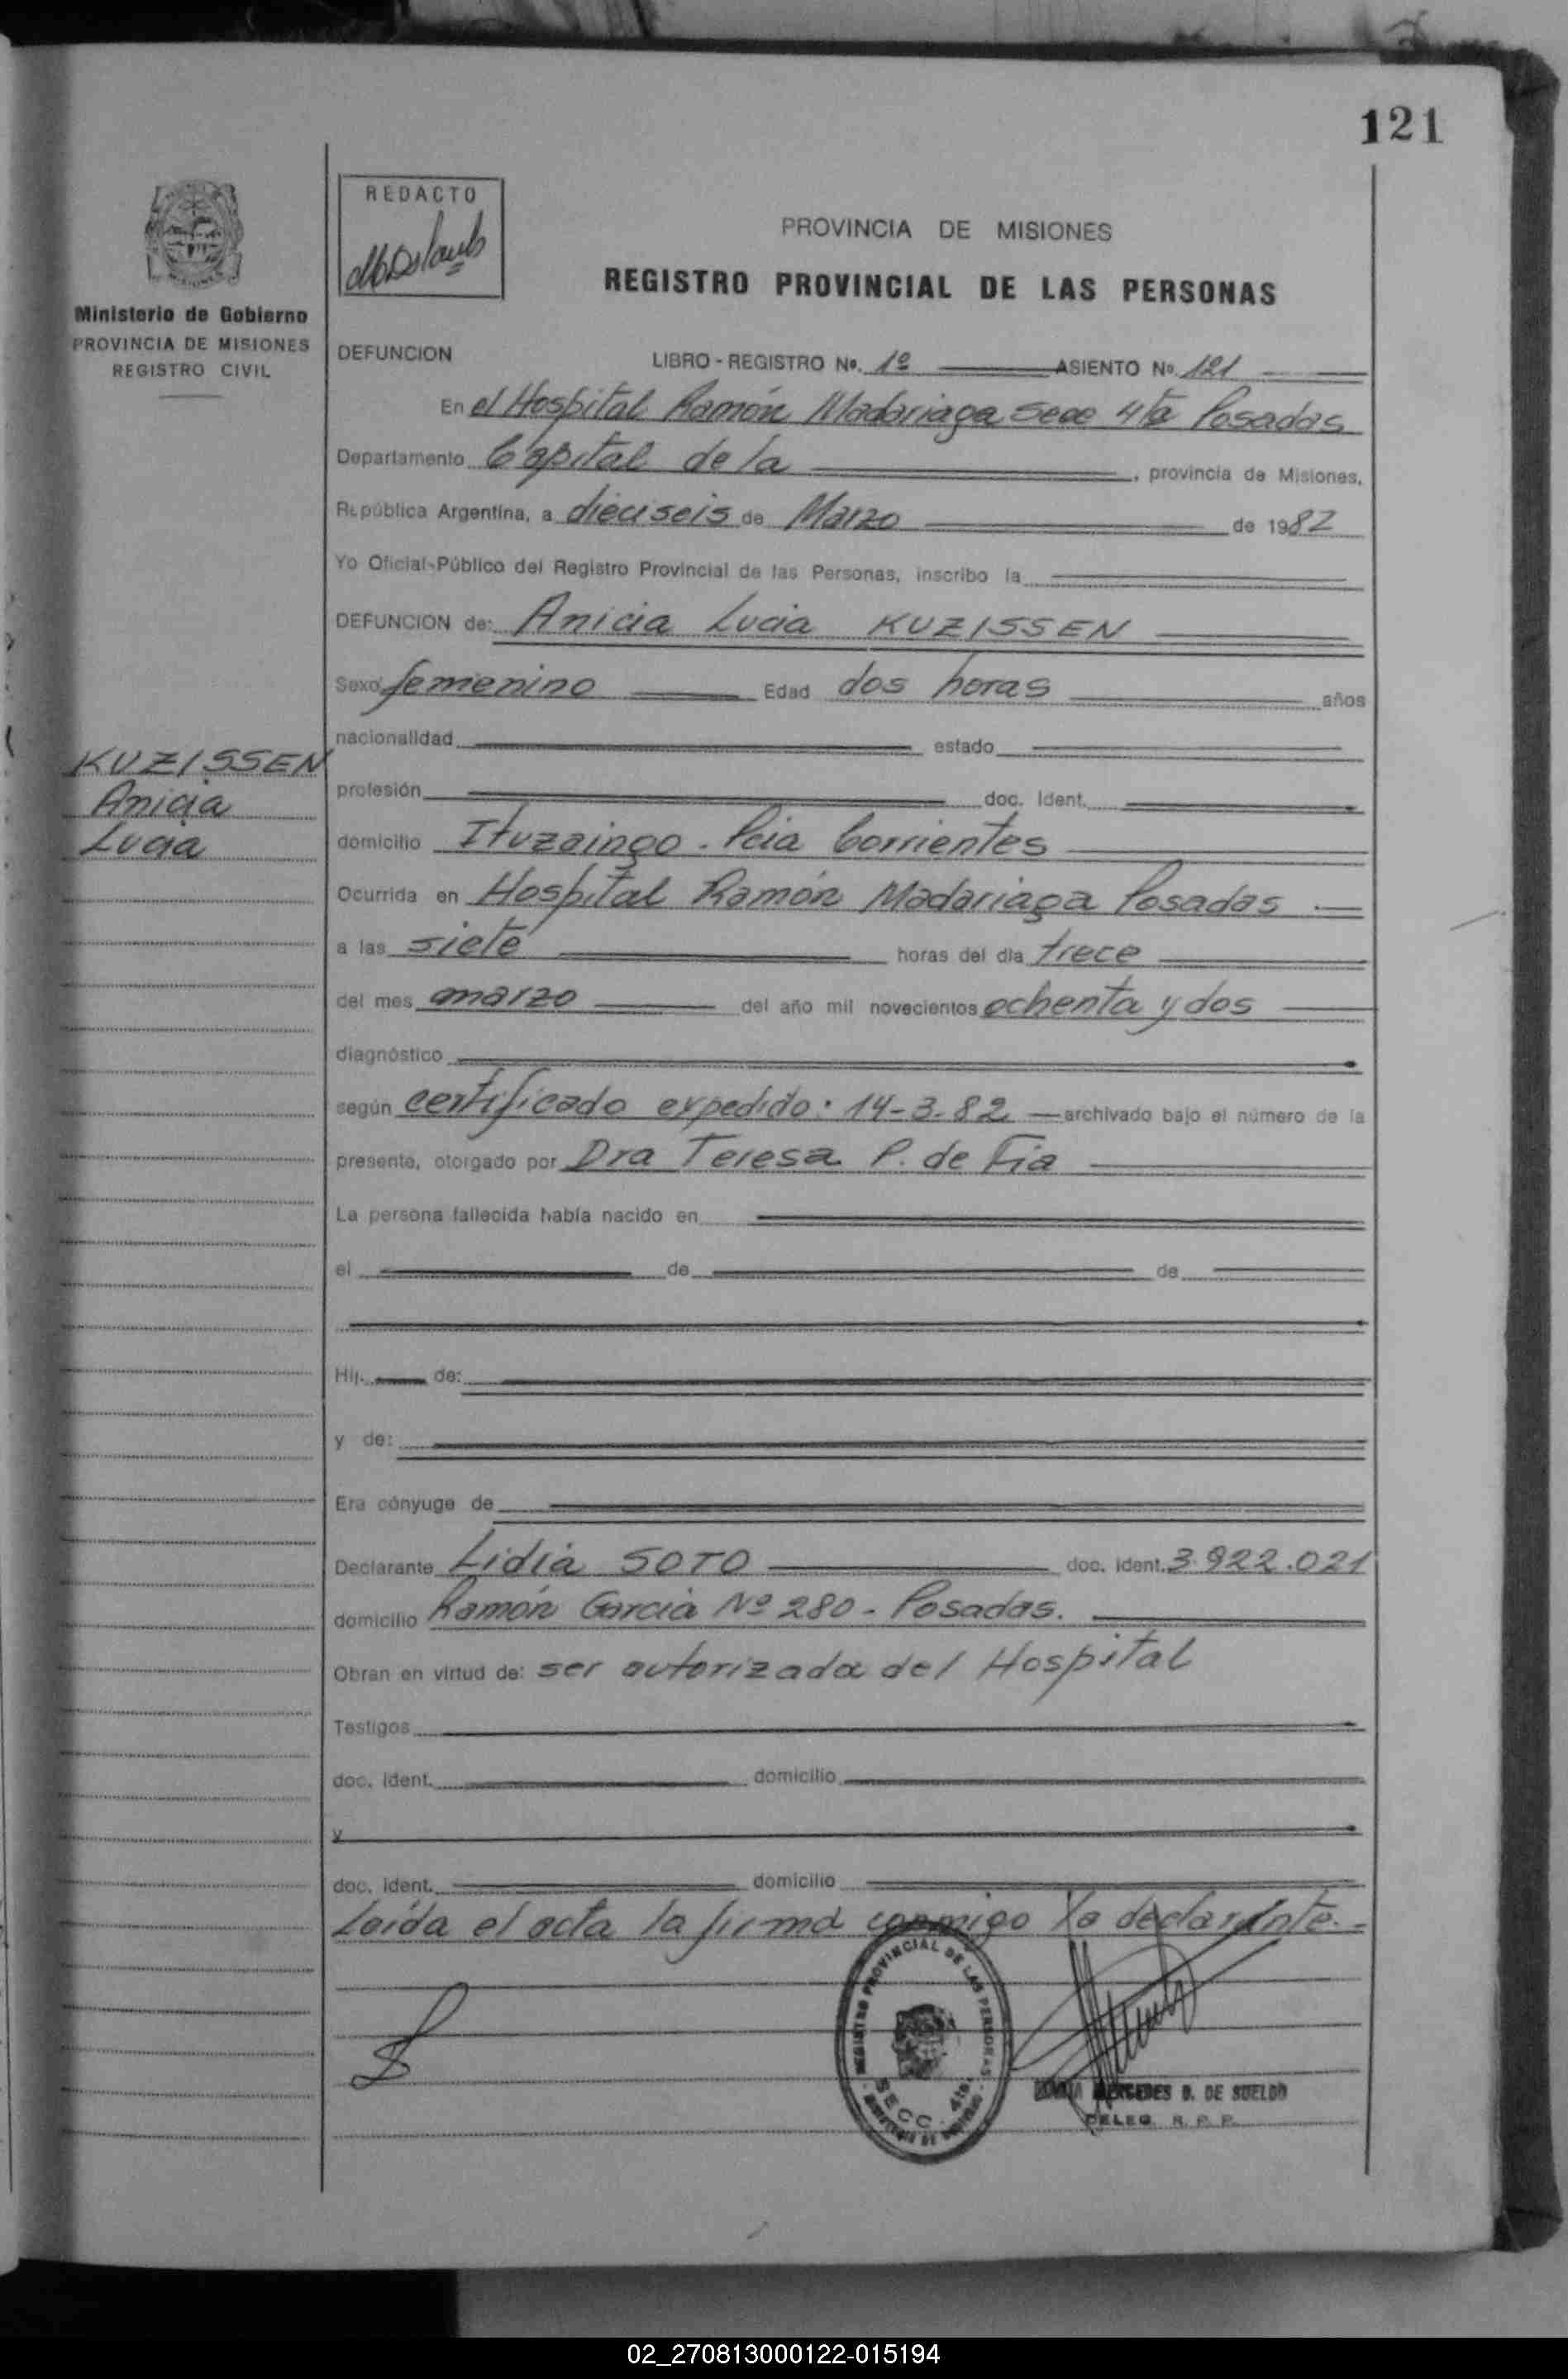 121
REDACTO
PROVINCIA DE MISIONES
REGISTRO PROVINCIAL DE LAS PERSONAS
Ministerio de Gobierno
PROVINCIA DE MISIONES
REGISTRO CIVIL
DEFUNCION LIBRO - REGISTRO Nº. 1º ASIENTO Nº. 121
En el Hospital Ramón Madariaga Secc 4ta Posadas
Departamento Capital de la , provincia de Misiones,
República Argentina, a dieciseis de Marzo de 1982
Yo Oficial-Público del Registro Provincial de las Personas, inscribo la
DEFUNCION de: Anicia Lucia KUZISSEN
Sexo femenino Edad dos horas años
nacionalidad estado
KUZISSEN
Anicia
Lucia
profesión doc. Ident.
domicilio Ituzaingo - Pcia Corrientes
Ocurrida en Hospital Ramón Madariaga Posadas
a las siete horas del día trece
del mes marzo del año mil novecientos ochenta y dos
diagnóstico
según certificado expedido: 14-3-82 archivado bajo el número de la
presente, otorgado por Dra Teresa P. de Fia
La persona fallecida había nacido en
el de de
Hij. de:
y de:
Era cónyuge de
Declarante Lidia SOTO doc. ident. 3.922.021
domicilio Ramón Garcia Nº 280 - Posadas.
Obran en virtud de: ser autorizada del Hospital
Testigos
doc. ident. domicilio
y
doc. ident. domicilio
Leída el acta la firma conmigo la declarante.-
REGISTRO PROVINCIAL DE LAS PERSONAS
SECC. 4ta.
MARIA MERCEDES D. DE SUELDO
DELEG. R. P. P.
02_270813000122-015194